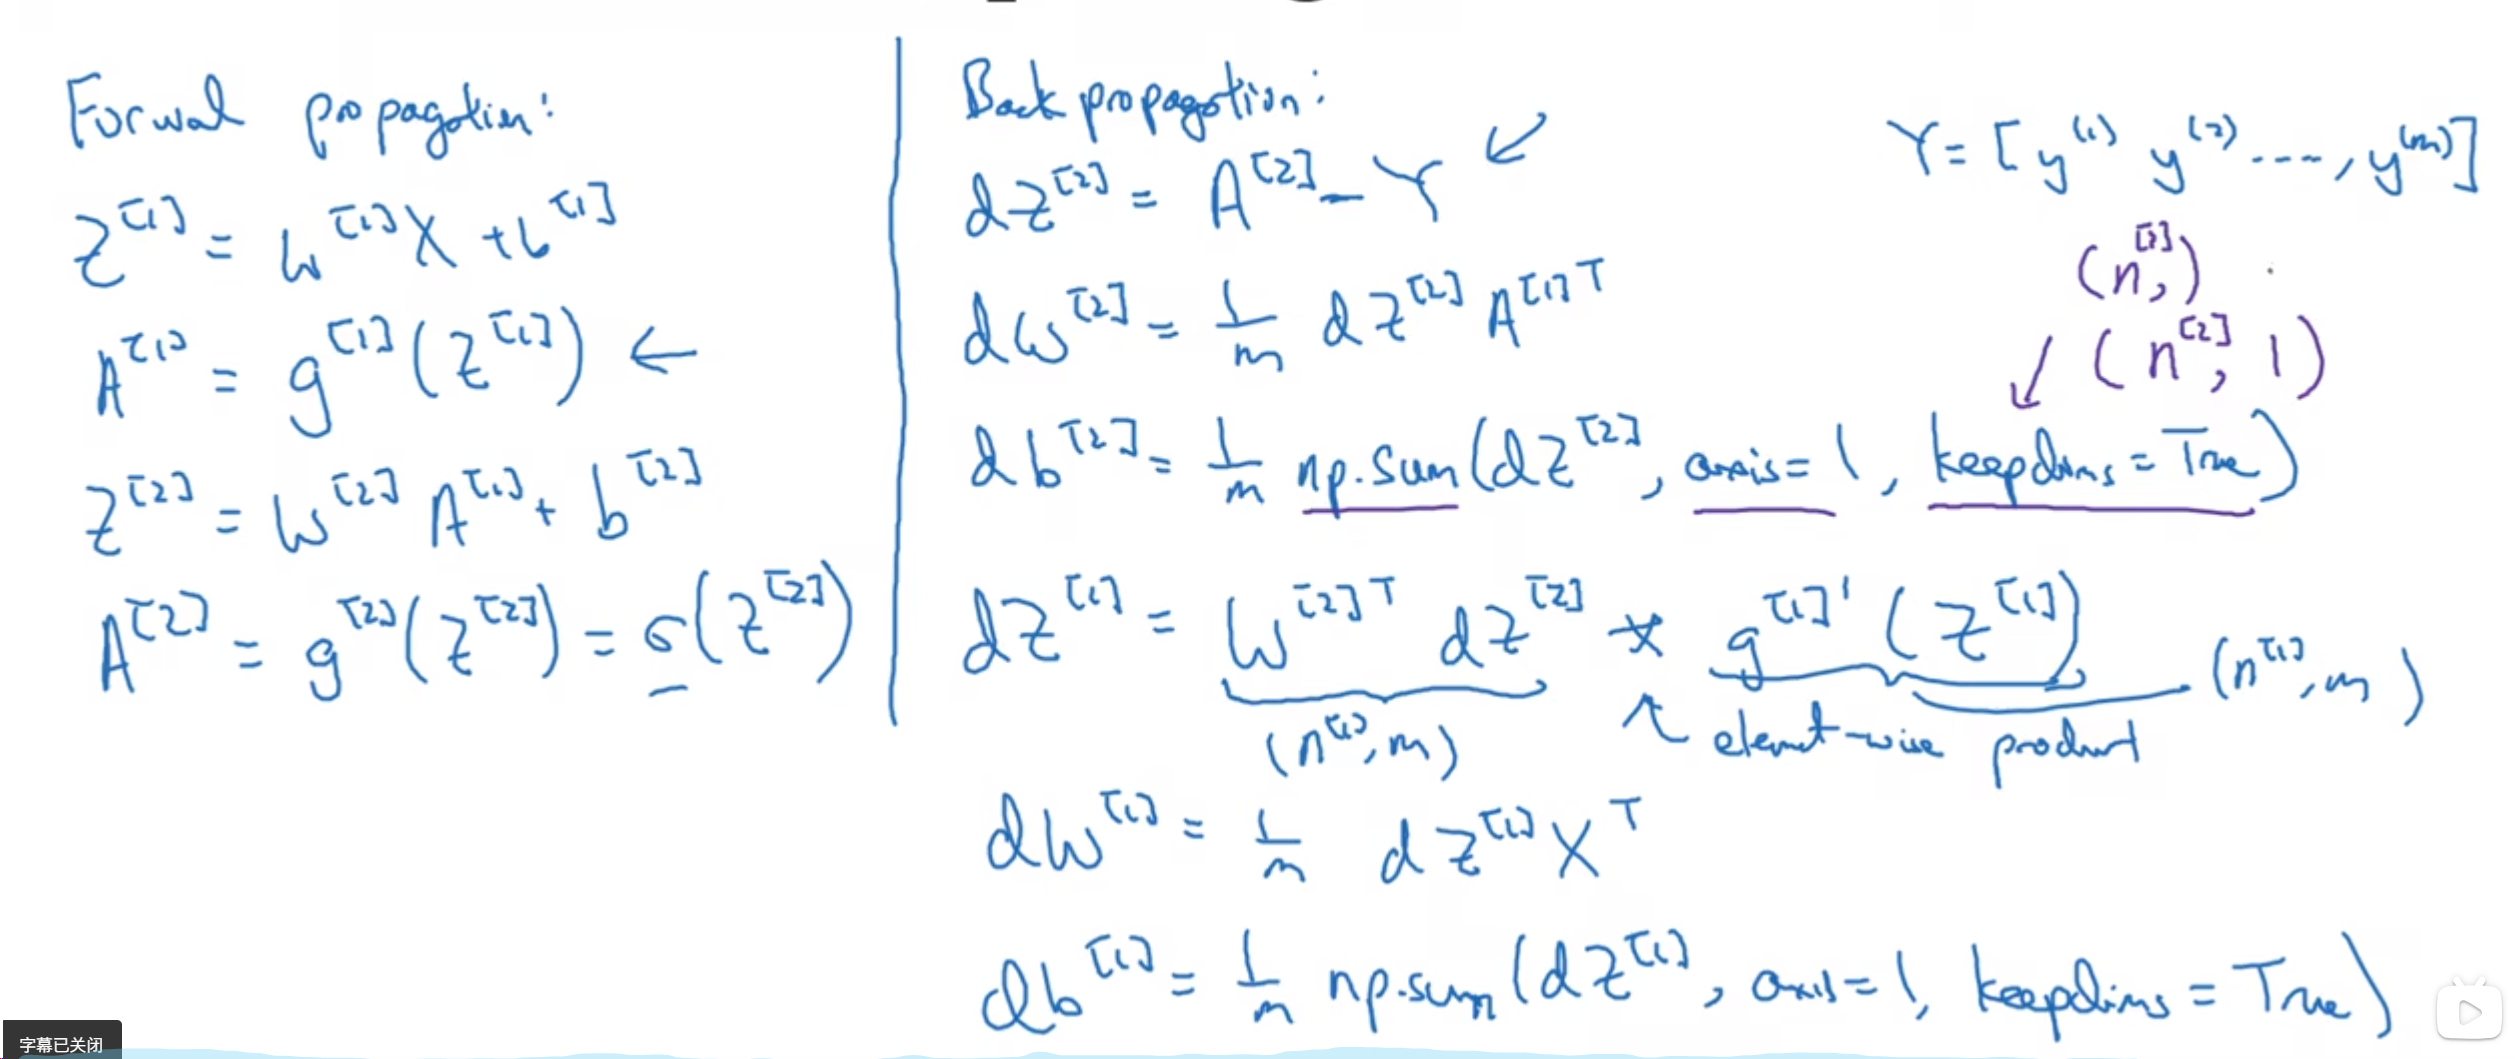 Forwal propagation:
Z^[1] = W^[1]X + b^[1]
A^[1] = g^[1](Z^[1]) ←
Z^[2] = W^[2]A^[1] + b^[2]
A^[2] = g^[2](Z^[2]) = σ(Z^[2])
Back propagation:
dZ^[2] = A^[2] - Y ↙
Y = [y^(1) y^(2) ...., y^(m)]
dW^[2] = 1/m dZ^[2] A^[1]T
(n^[2],)
↙ (n^[2], 1)
db^[2] = 1/m np.sum(dZ^[2], axis=1, keepdims=True)
dZ^[1] = W^[2]T dZ^[2] * g^[1]'(Z^[1])
(n^[1], m)
(n^[1], m)
↖ element-wise product
dW^[1] = 1/m dZ^[1] X^T
db^[1] = 1/m np.sum(dZ^[1], axis=1, keepdims=True)
字幕已关闭